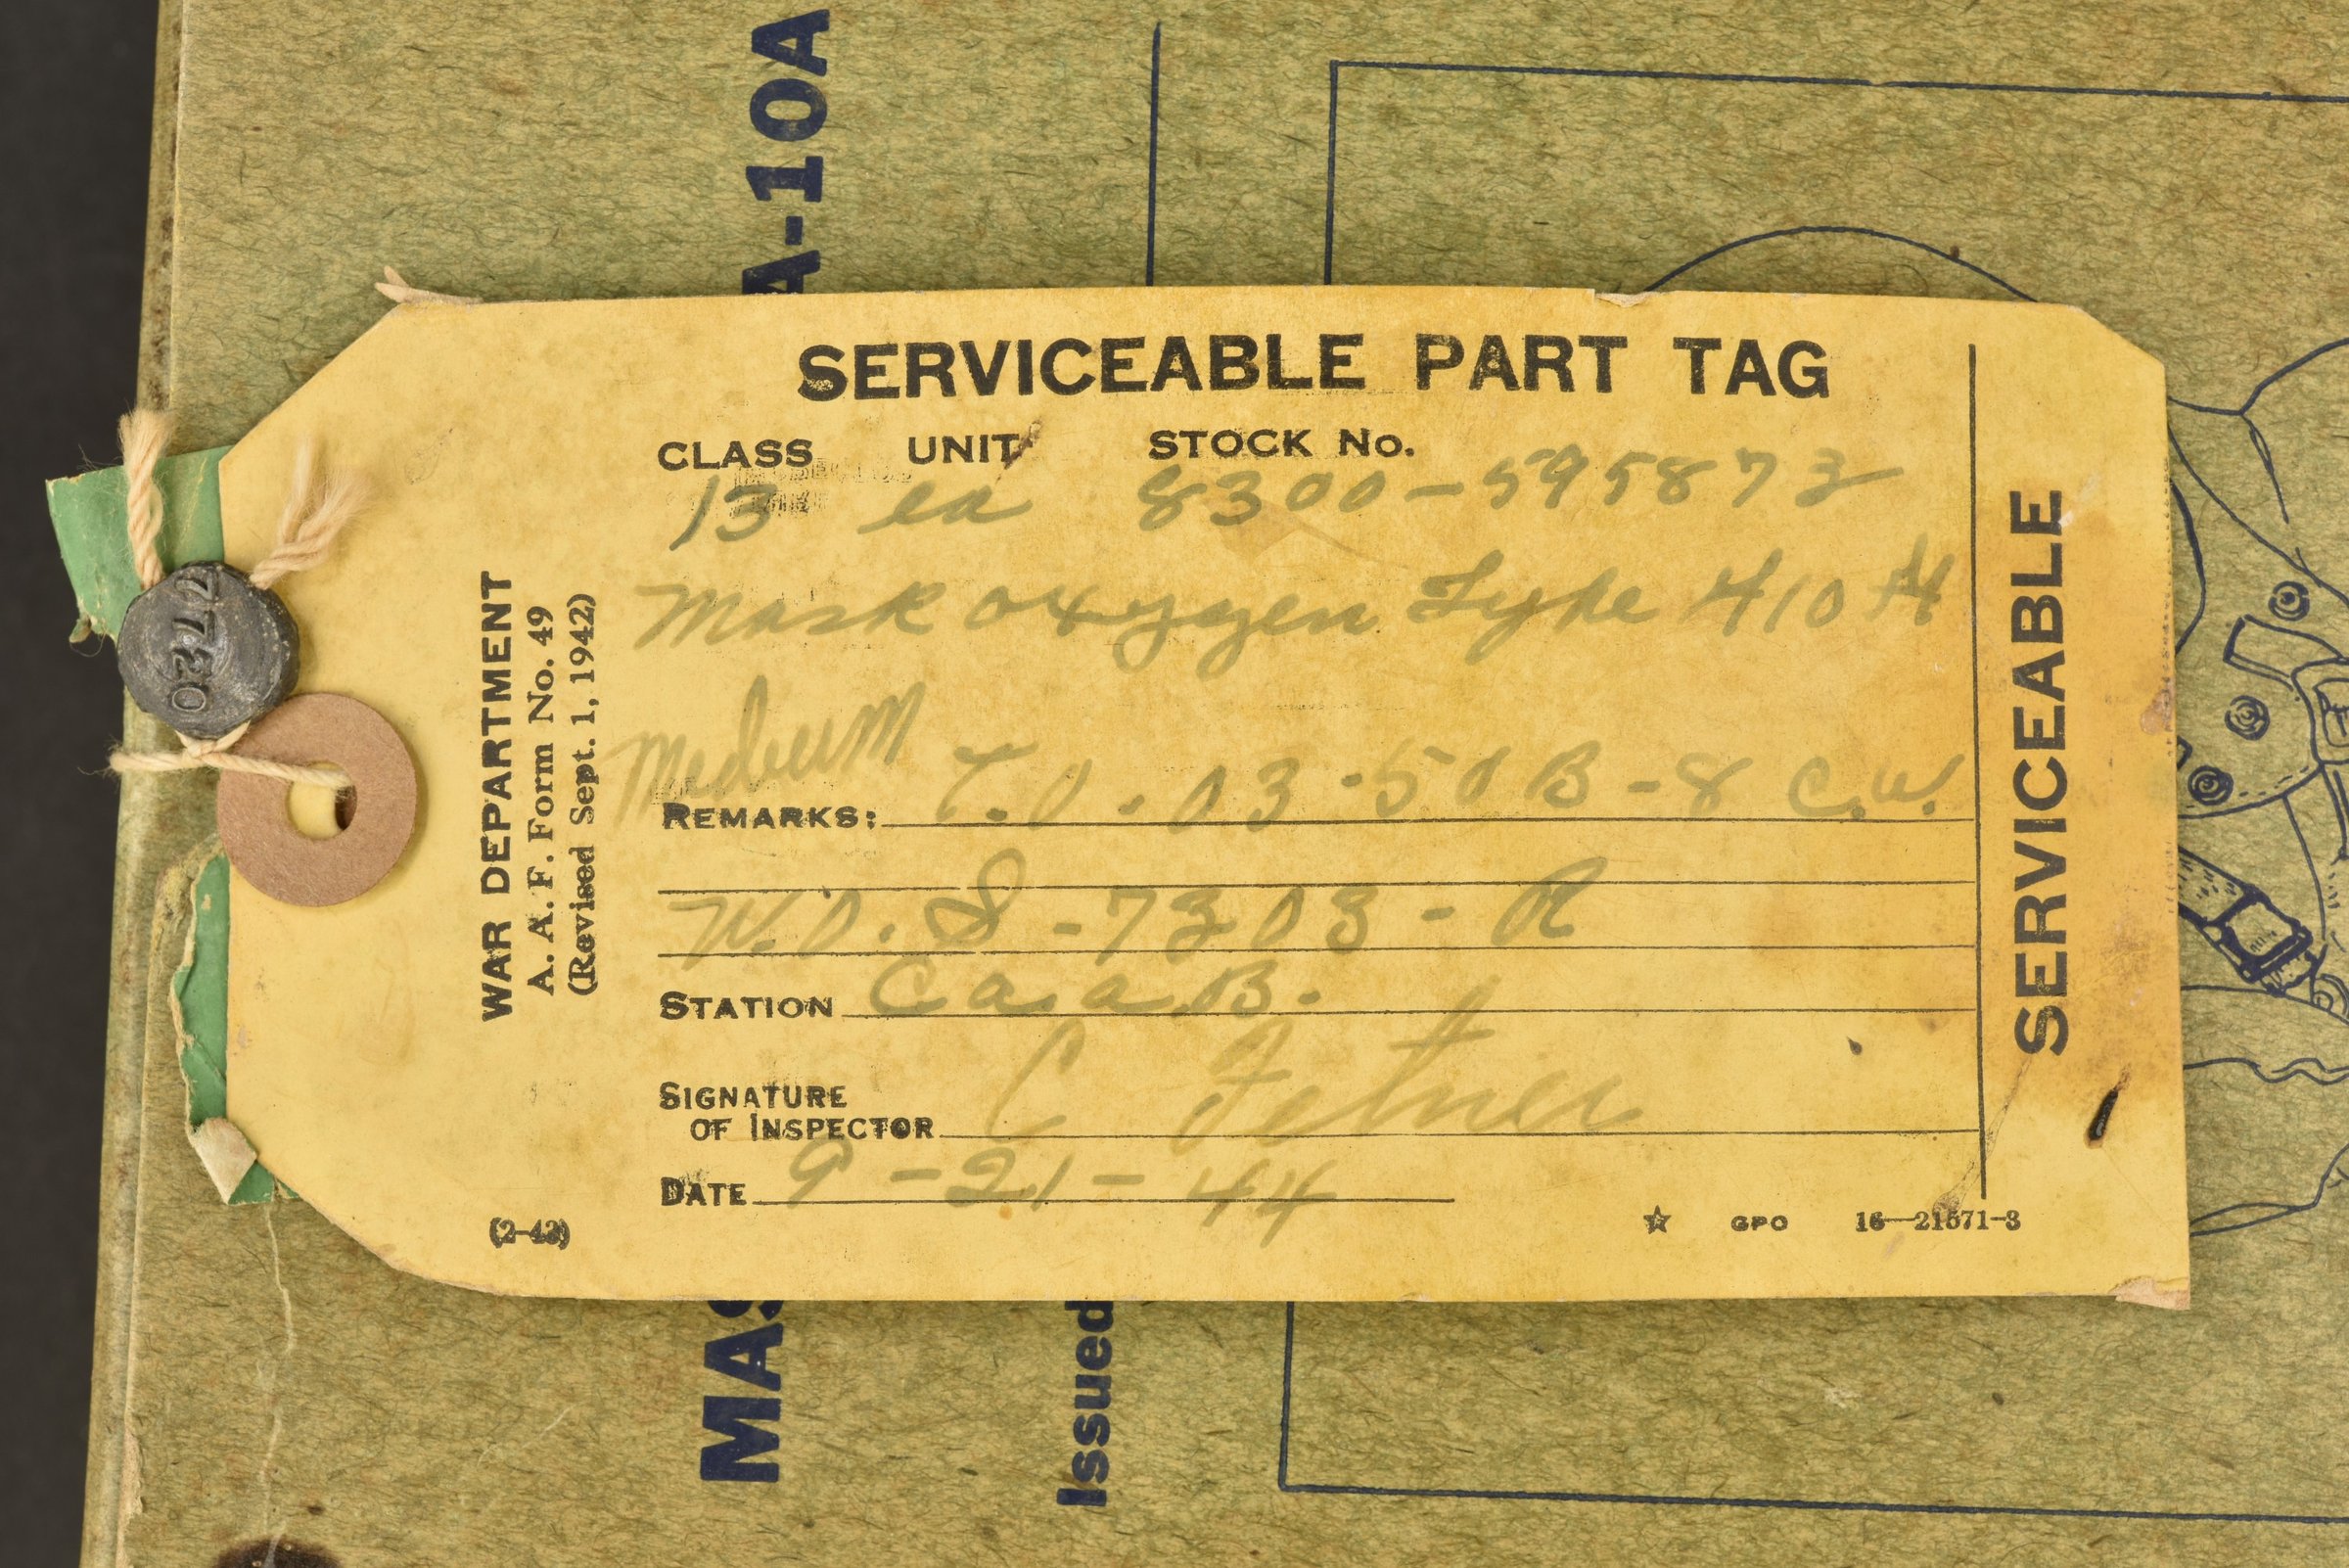 A-10A
SERVICEABLE PART TAG
CLASS UNIT STOCK No.
13 ea 8300-595873
Mask oxygen Type A10A
Medium
REMARKS: T.O. 03-50B-8 C.W.
W.O. S-7303-R
STATION C.a.a.B.
SIGNATURE
OF INSPECTOR C
DATE 9-21-44
☆ GPO 16—21571-3
SERVICEABLE
WAR DEPARTMENT
A. A. F. Form No. 49
(Revised Sept. 1, 1942)
7720
MAS
Issued